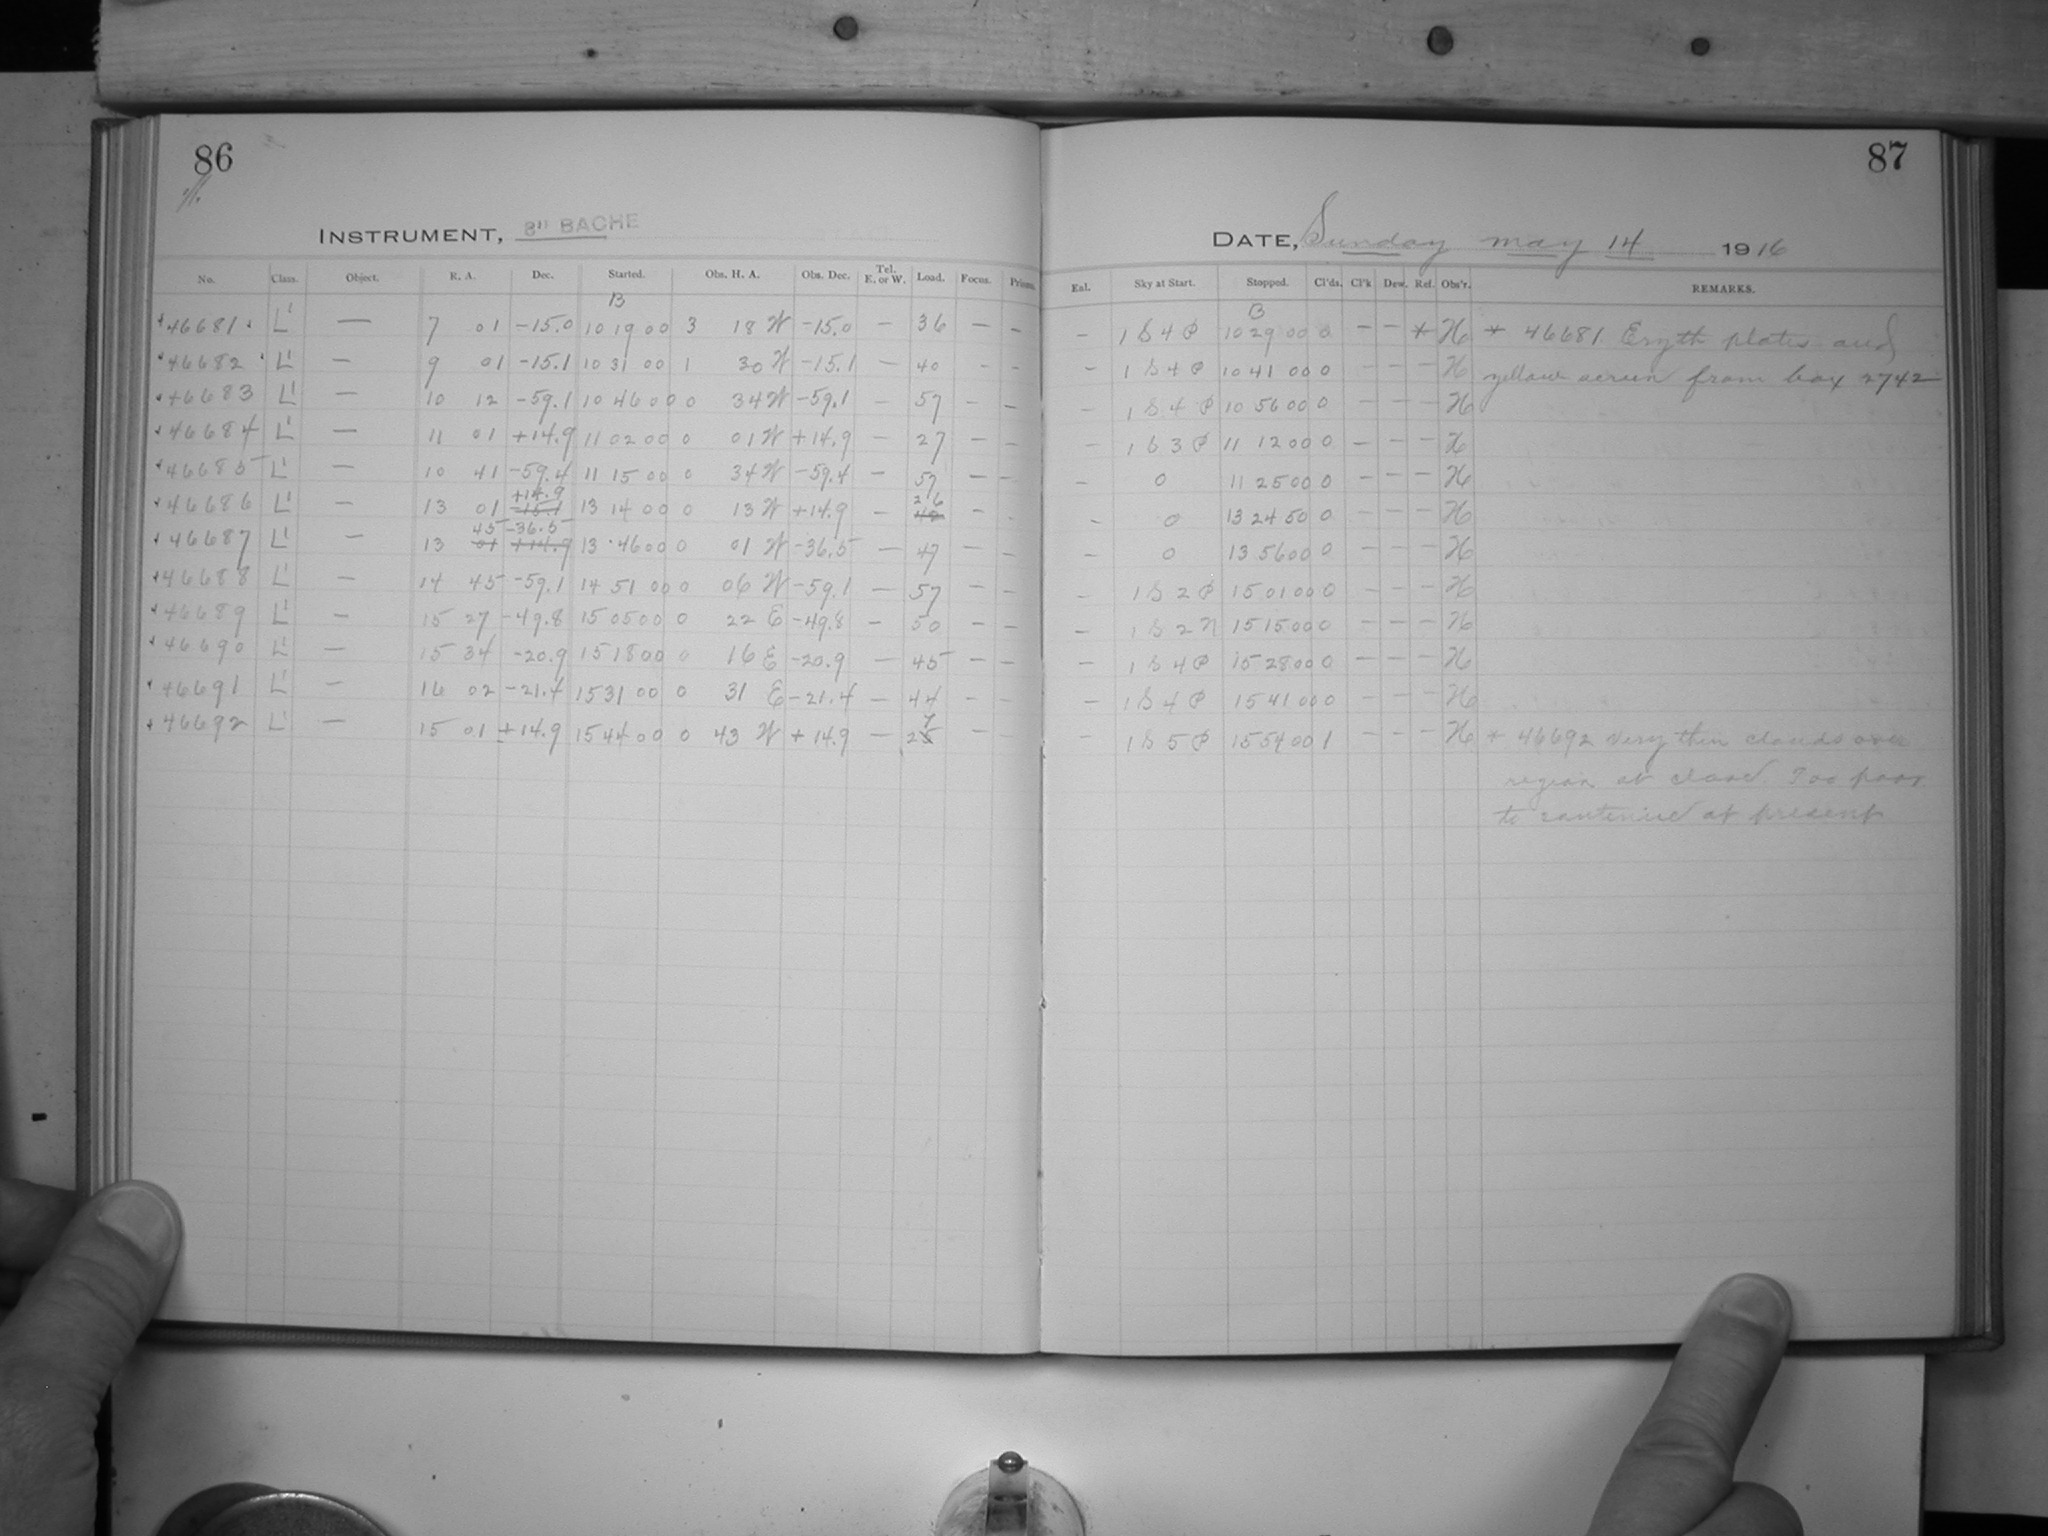 86
INSTRUMENT, 8" BACHE
No. Class. Object. R. A. Dec. Started. Obs. H. A. Obs. Dec. Tel. E. or W. Load. Focus. Prisms.
B
46681 L' — 7 01 -15.0 10 19 00 3 18 W -15.0 — 36 — —
46682 L' — 9 01 -15.1 10 31 00 1 30 W -15.1 — 40 - -
46683 L' — 10 12 -59.1 10 46 00 0 34 W -59.1 — 57 — —
46684 L' — 11 01 +14.9 11 02 00 0 01 W +14.9 — 27 — —
46685 L' — 10 41 -59.4 11 15 00 0 34 W -59.4 — 57 — —
+14.9 26
46686 L' — 13 01 -15.1 13 14 00 0 13 W +14.9 — 40 — -
45 -36.5
46687 L' — 13 01 +14.9 13 46 00 0 01 W -36.5 — 47 — —
46688 L' — 14 45 -59.1 14 51 00 0 06 W -59.1 — 57 — —
46689 L' — 15 27 -49.8 15 05 00 0 22 E -49.8 — 50 — —
46690 L' — 15 34 -20.9 15 18 00 0 16 E -20.9 — 45 — —
46691 L' — 16 02 -21.4 15 31 00 0 31 E -21.4 — 44 — —
7
46692 L' — 15 01 +14.9 15 44 00 0 43 W +14.9 — 25 — —
87
DATE, Sunday May 14 1916
Eal. Sky at Start. Stopped. Cl'ds. Cl'k Dew. Ref. Obs'r. REMARKS.
B
— 1 S 4 P 10 29 00 0 — — * H * 46681 Eryth plates and
— 1 S 4 P 10 41 00 0 — — — H yellow screen from box 2742
— 1 S 4 P 10 56 00 0 — — — H
— 1 S 3 P 11 12 00 0 — — — H
— 0 11 25 00 0 — — — H
— 0 13 24 50 0 — — — H
— 0 13 56 00 0 — — — H
— 1 S 2 P 15 01 00 0 — — — H
— 1 S 2 N 15 15 00 0 — — — H
— 1 S 4 P 15 28 00 0 — — — H
— 1 S 4 P 15 41 00 0 — — — H
— 1 S 5 P 15 54 00 1 — — — H * 46692 very thin clouds over
region at close. Too poor
to continue at present